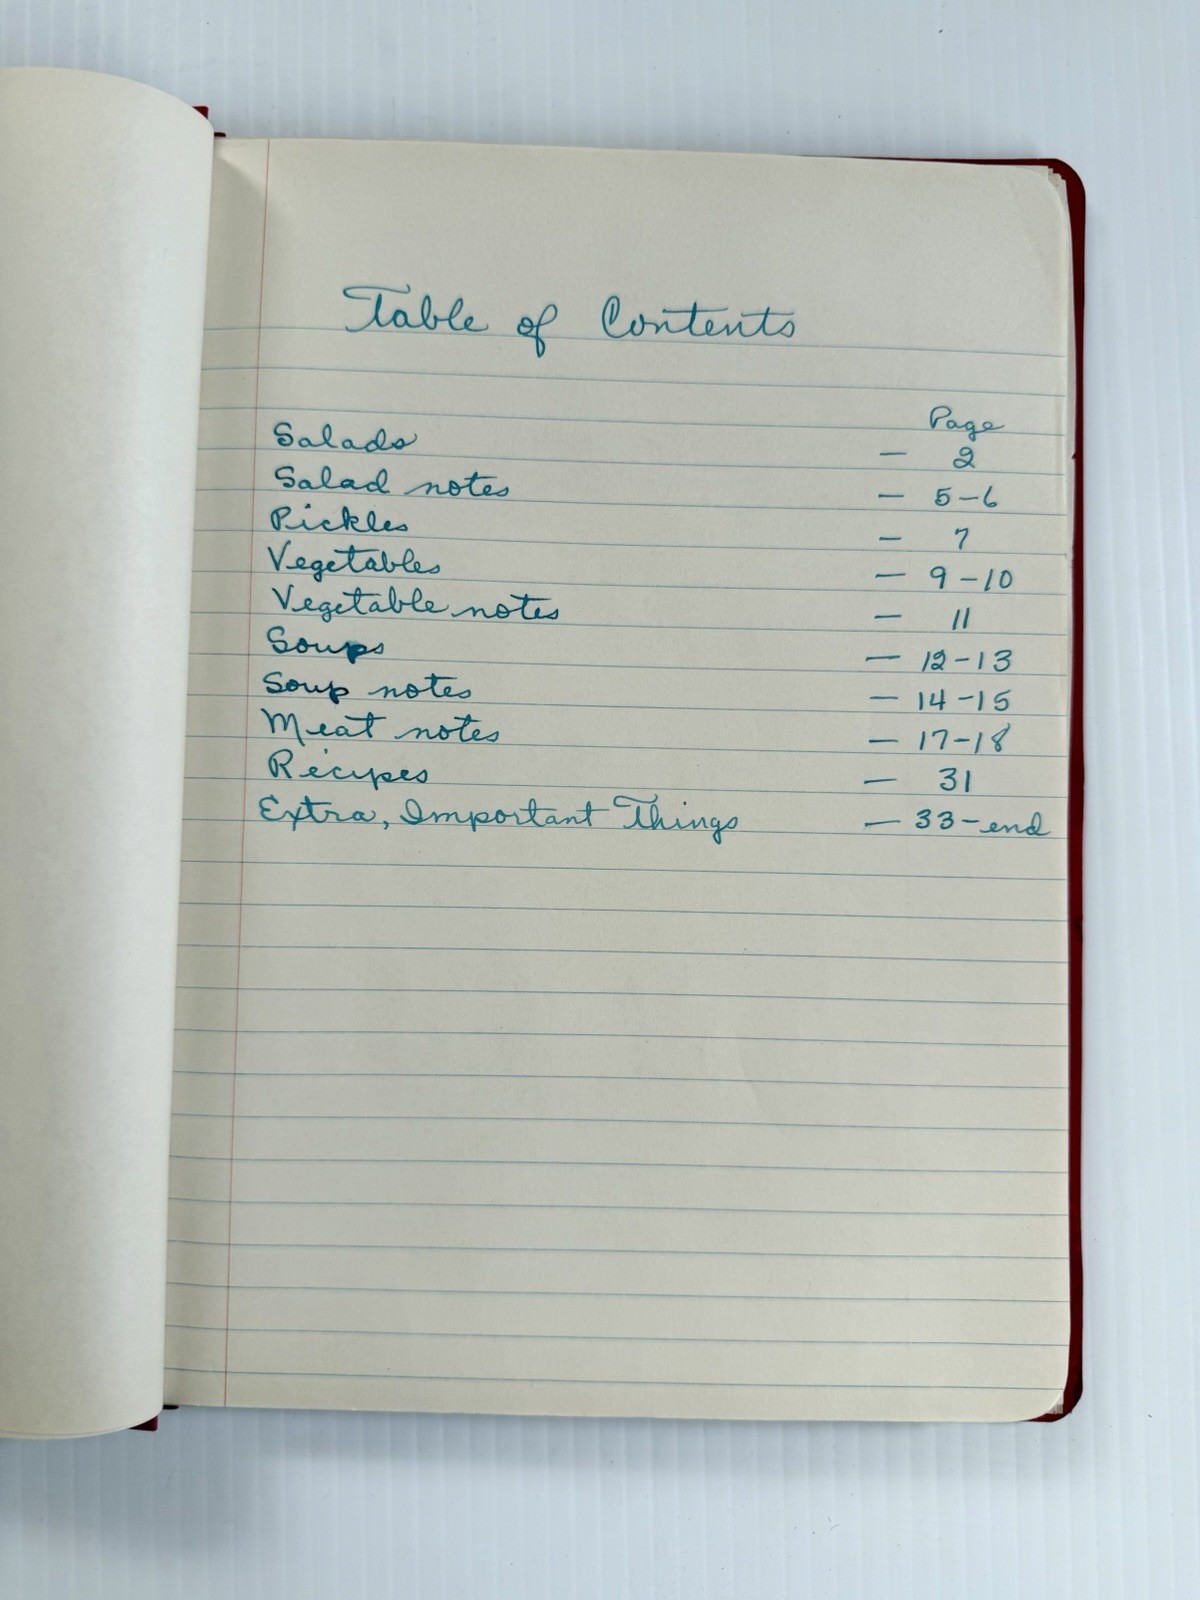 Table of Contents
Page
Salads — 2
Salad notes — 5-6
Pickles — 7
Vegetables — 9-10
Vegetable notes — 11
Soups — 12-13
Soup notes — 14-15
Meat notes — 17-18
Recipes — 31
Extra, Important Things — 33-end